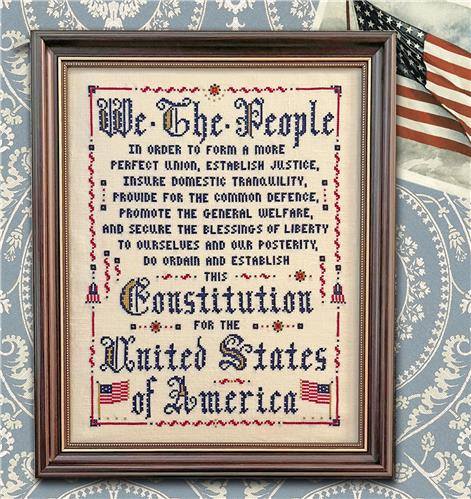 We · The · People
IN ORDER TO FORM A MORE
PERFECT UNION, ESTABLISH JUSTICE,
INSURE DOMESTIC TRANQUILITY,
PROVIDE FOR THE COMMON DEFENCE,
PROMOTE THE GENERAL WELFARE,
AND SECURE THE BLESSINGS OF LIBERTY
TO OURSELVES AND OUR POSTERITY,
DO ORDAIN AND ESTABLISH
THIS
Constitution
FOR THE
United States
of America